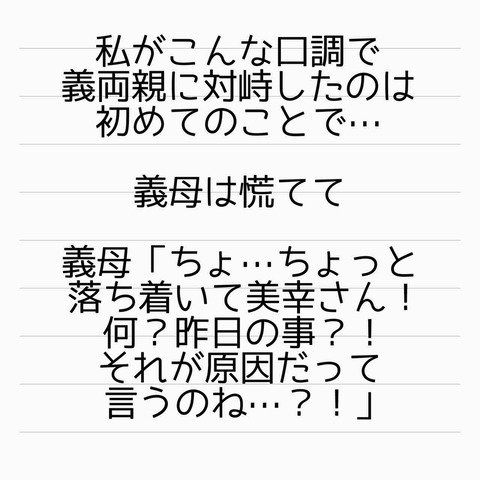 私がこんな口調で
義両親に対峙したのは
初めてのことで…
義母は慌てて
義母「ちょ…ちょっと
落ち着いて美幸さん！
何？昨日の事？！
それが原因だって
言うのね…？！」